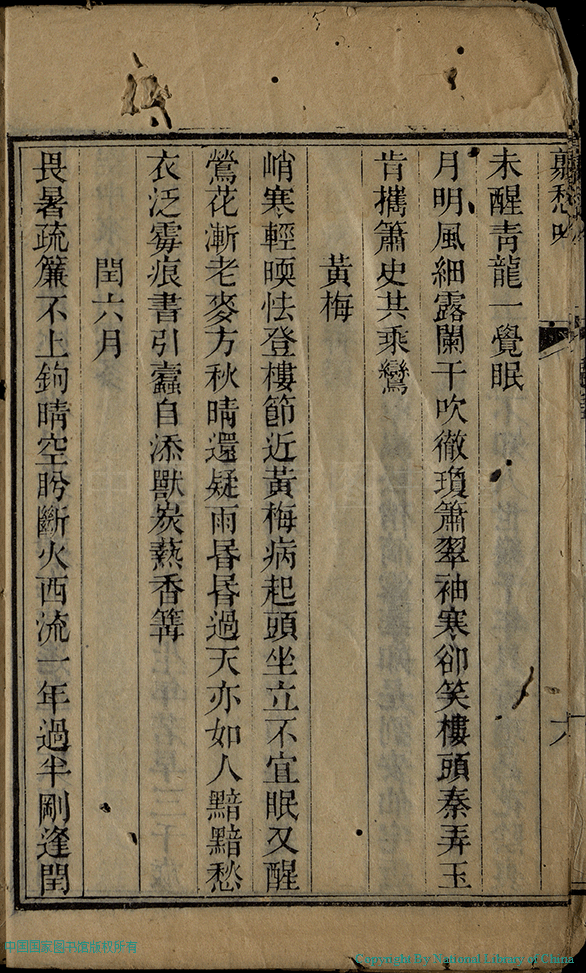 未醒靑龍一覺眠
月明風細露闌干吹徹瓊簫翠袖寒卻笑樓頭秦弄玉
肯攜簫史共乘鸞
黃梅
峭寒輕暝怯登樓節近黃梅病起頭坐立不宜眠又醒
鶯花漸老麥方秋晴還疑雨昏昏過天亦如人黯黯愁
衣泛霉痕書引蠧自添獸炭爇香篝
閏六月
畏暑疏簾不上鉤晴空盻斷火西流一年過半剛逢閏
六
中国国家图书馆版权所有
Copyright By National Library of China